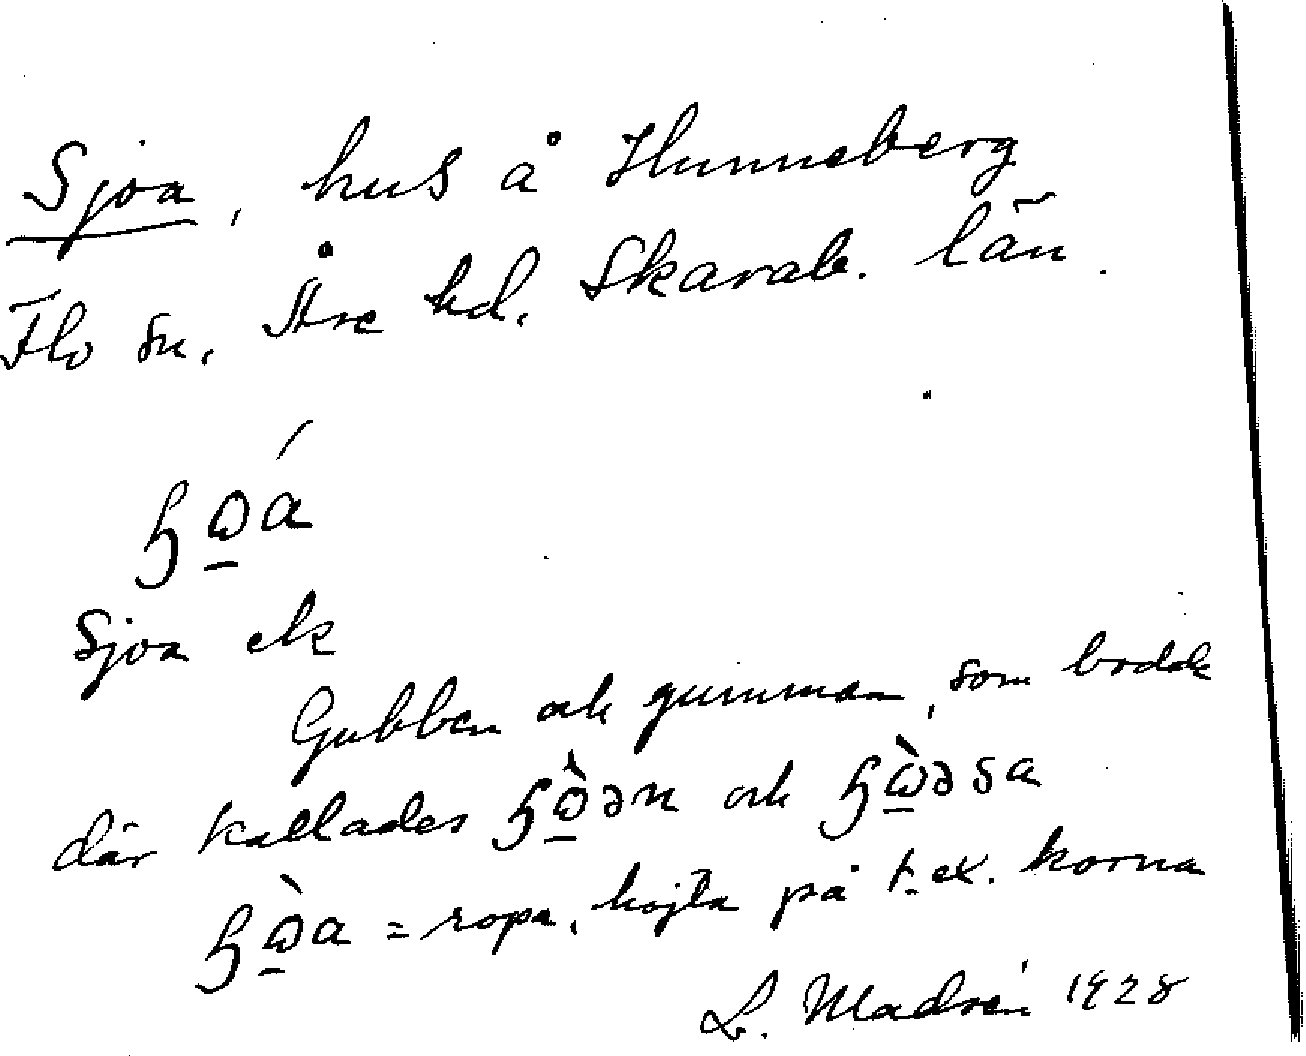 Sjoa, hus å Hunneberg
Flo sn, Åse hd, Skarab. län.
ɧꞷ̠á
Sjoa etc
Gubben och gumman, som bodde
där kallades ɧꞷ̠̀ən och ɧꞷ̠̀əsa
ɧꞷ̠̀a = ropa, hojta på t.ex. korna
L. Madsén 1928